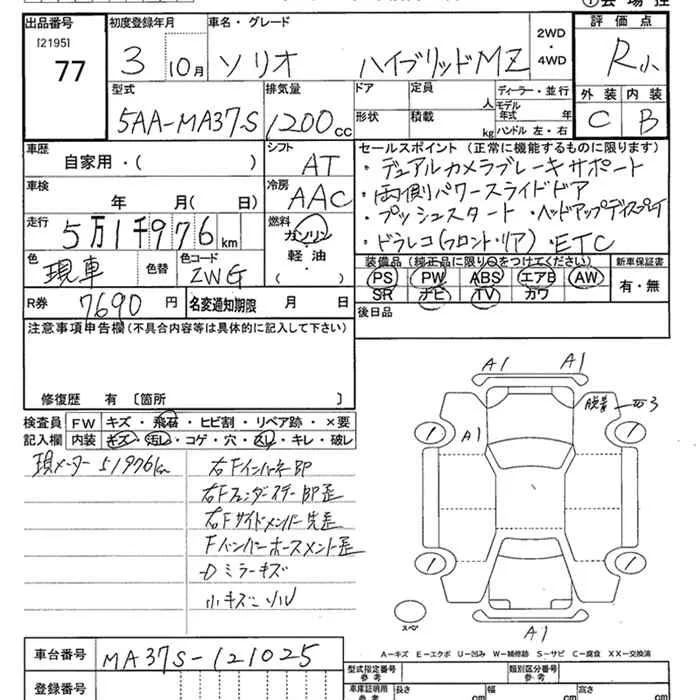 出品番号 初度登録年月 車名・グレード 2WD・4WD 評価点
[2195]
77 3 10月 ソリオ ハイブリッドMZ R小
型式 排気量 ドア 定員 人 ディーラー・並行 外装 内装
5AA-MA37S 1200cc 形状 積載 kg モデル年式 年 ハンドル 左・右 C B
車歴 自家用・( ) シフト AT
セールスポイント(正常に機能するものに限ります)
・デュアルカメラブレーキサポート
車検 年 月( 日) 冷房 AAC
・両側パワースライドドア
・プッシュスタート ・ヘッドアップディスプレイ
走行 5万1千976km 燃料 ガソリン・軽油・( )
・ドラレコ(フロント・リア) ・ETC
色 現車 色替 色コード ZWG
装備品(純正品に限り○をつけてください) 新車保証書
PS PW ABS エアB AW 有・無
SR ナビ TV カワ
R券 7690円 名変通知期限 月 日
後日品
注意事項申告欄(不具合内容等は具体的に記入して下さい)
修復歴 有 〔箇所 〕
検査員 FW キズ・飛石・ヒビ割・リペア跡・×要
記入欄 内装 キズ・汚レ・コゲ・穴・スレ・キレ・破レ
現メーター51976km 右Fインパネ即
右Fフェンダーステー即歪
右Fサイドメンバー先歪
Fバンパーホースメント歪
Dミラーキズ
小キズ
A1 A1
脱着 3
A1
1 1
1 1
スペ
A1
A-キズ E-エクボ U-凹み W-補修跡 S-サビ C-腐食 XX-交換済
車台番号 MA37S-121025
登録番号
型式指定番号 参考 類別区分番号 参考
車庫証明用 参考 長さ cm 幅 cm 高さ cm